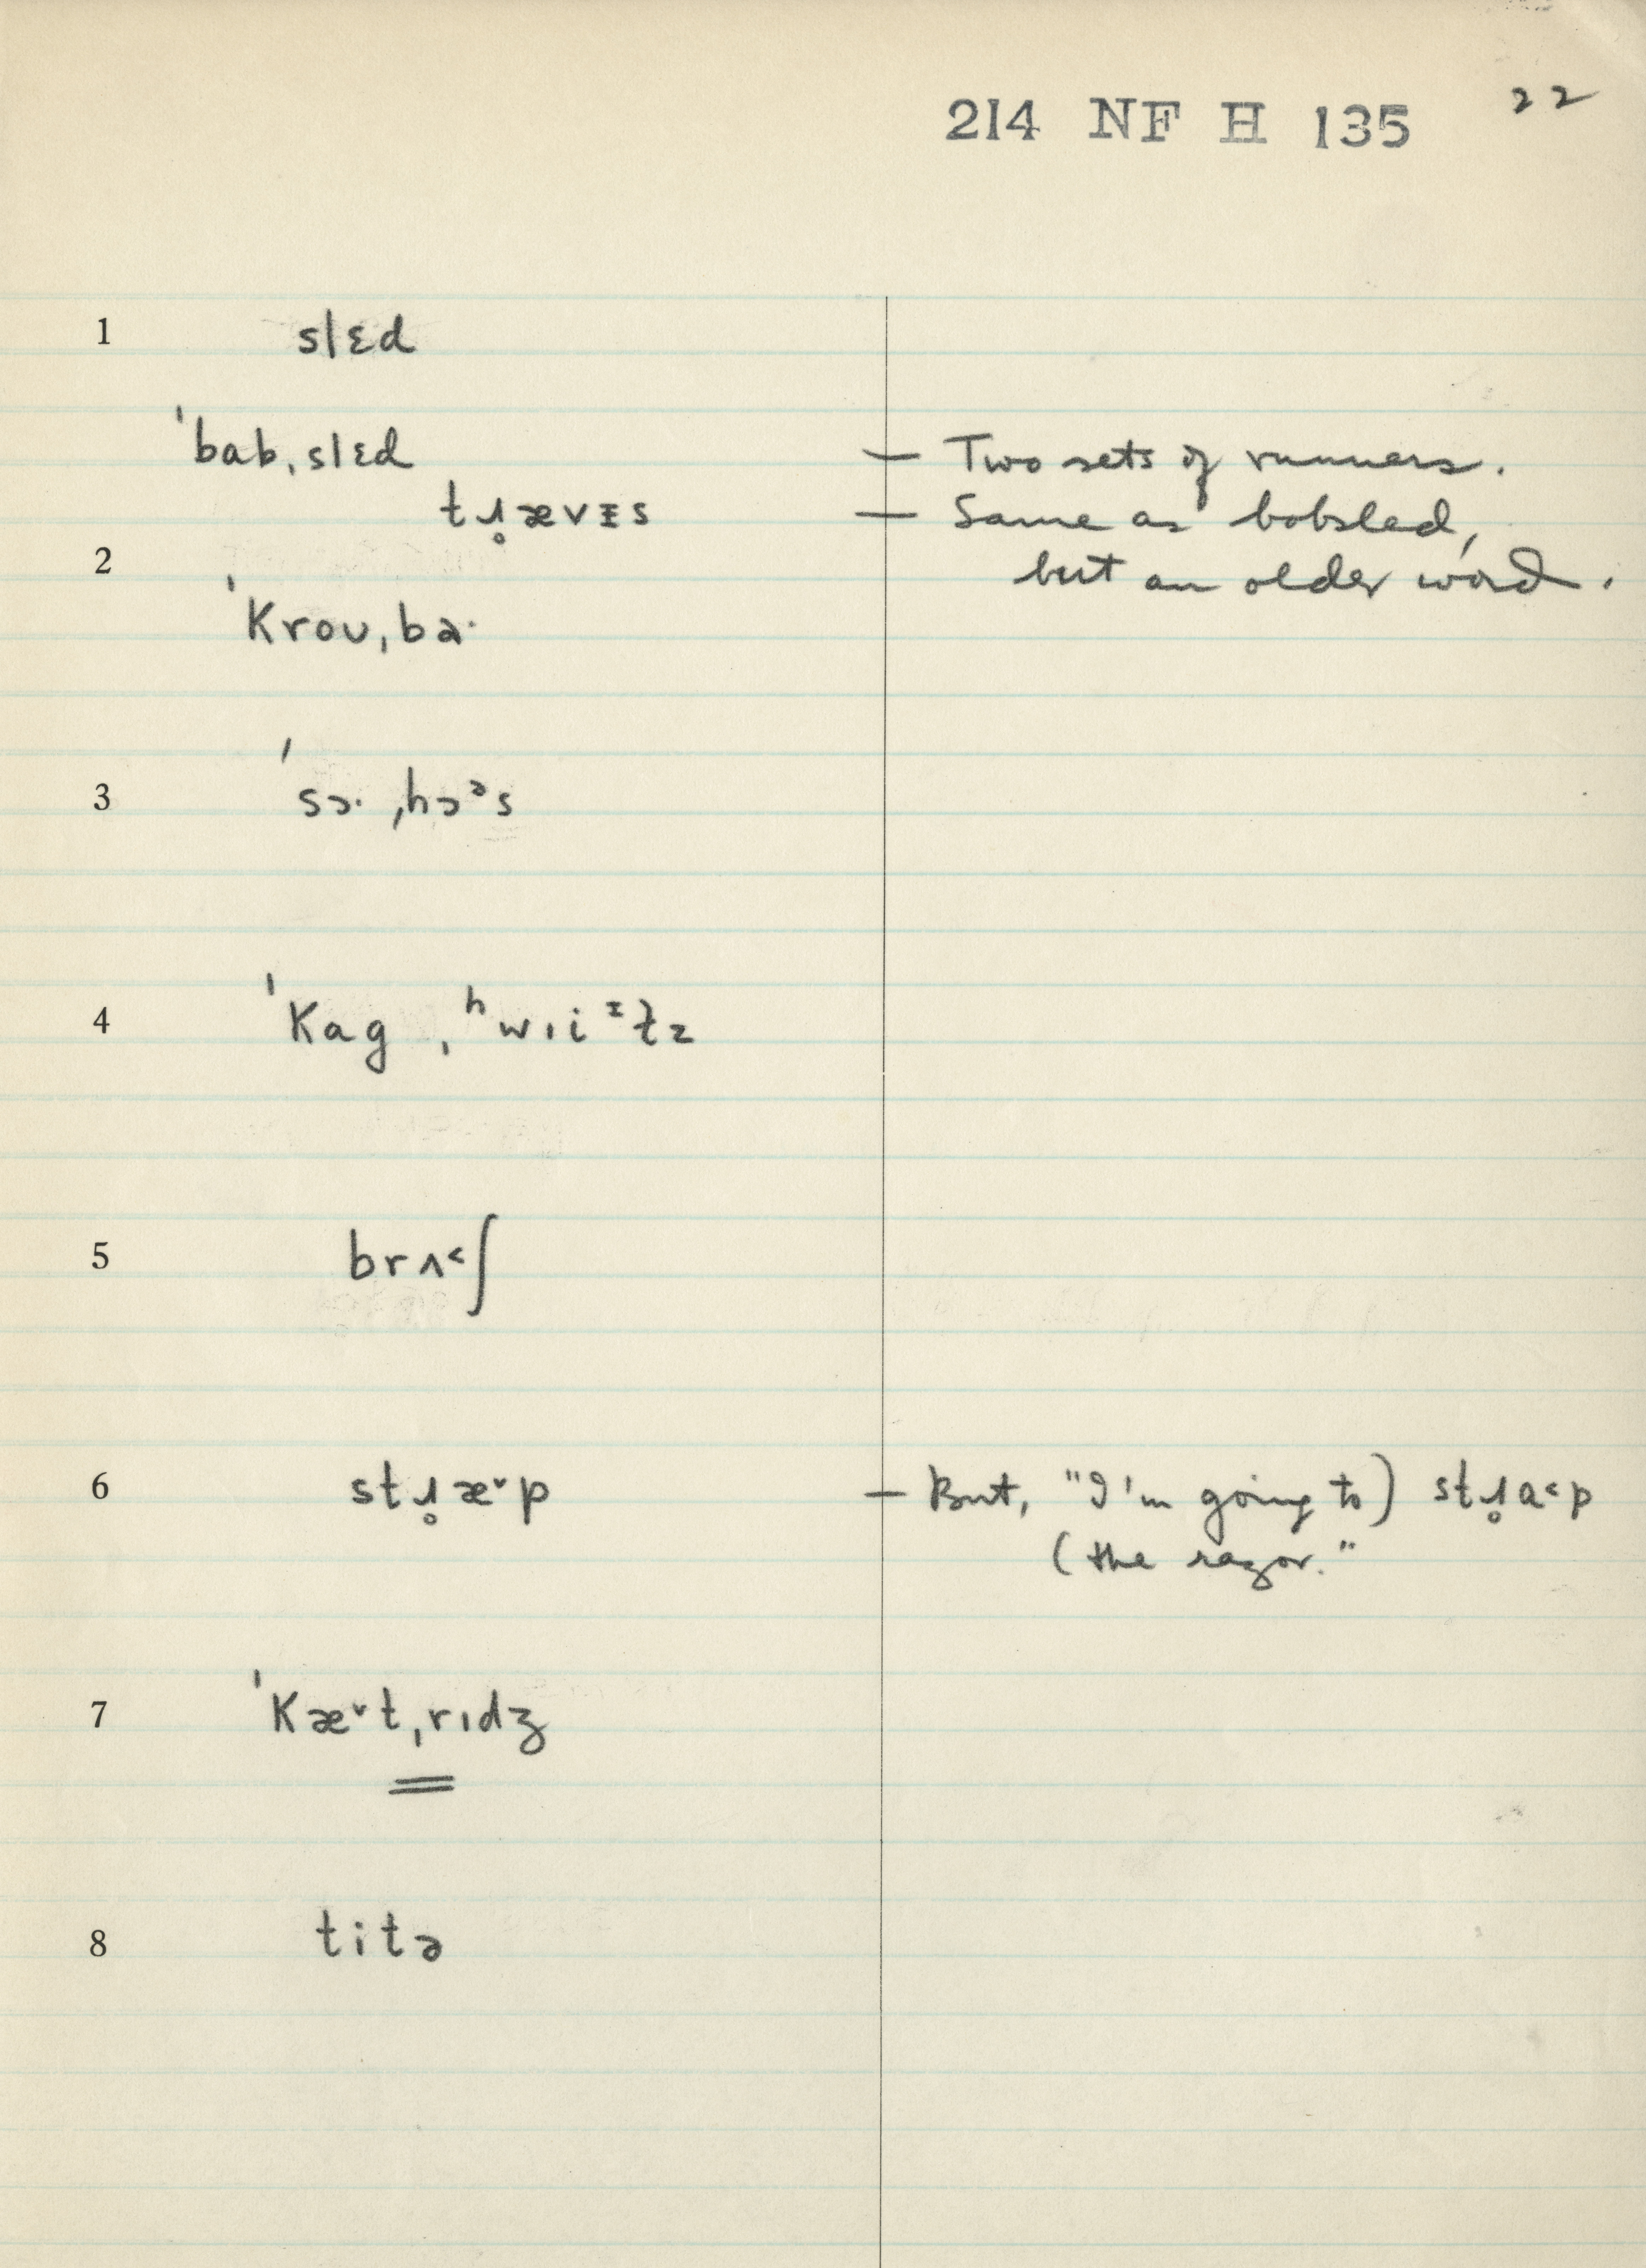 214 NF H 135 22
1 slɛd
ˈbabˌslɛd — Two sets of runners.
tɹ̥ævᵻs — Same as bobsled,
2 but an older word.
ˈkroʊˌba·
3 ˈsɔ· ˌhɔᵊs
4 ˈkag ˌʰwɪiᵻt̬z
5 brʌ˂ʃ
6 stɹ̥æ˅p — But, "I'm going to) stɹ̥a˂p
(the razor."
7 ˈkæ˅tˌrɪdʒ
8 titə